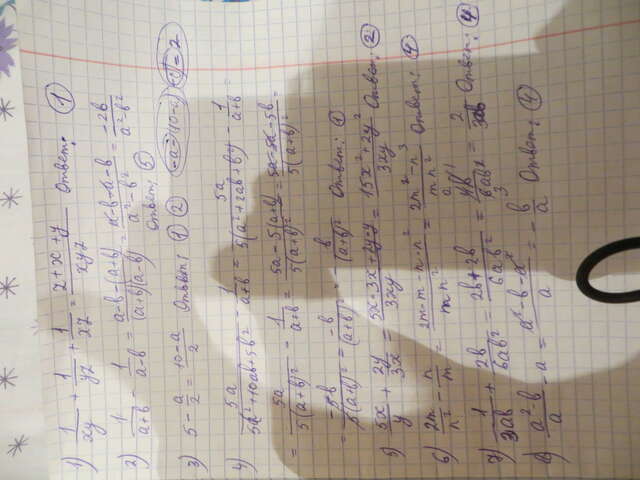 1) 1/xy + 1/yz + 1/xz = (z+x+y)/xyz Ответ: ①
2) 1/(a+b) - 1/(a-b) = (a-b-(a+b))/((a+b)(a-b)) = (a-b-a-b)/(a²-b²) = -2b/(a²-b²)
Ответ: ⑤
3) 5 - a/2 = (10-a)/2 Ответ: ① ②
4) 5a/(5a²+10ab+5b²) - 1/(a+b) = 5a/(5(a²+2ab+b²)) - 1/(a+b) =
= 5a/(5(a+b)²) - 1/(a+b) = (5a-5(a+b))/(5(a+b)²) = (5a-5a-5b)/(5(a+b)²) =
= -5b/(5(a+b)²) = -b/(a+b)² = - b/(a+b)² Ответ:
5) 5x/y + 2y/3x = (5x·3x+2y·y)/3xy = (15x²+2y²)/3xy Ответ: ②
6) 2m/n² - n/m = (2m·m-n·n²)/mn² = (2m²-n³)/mn² Ответ: ④
7) 1/3ab + 2b/6ab² = (2b+2b)/6ab² = Ответ: ④
8) a²-b/a - a = (a²-b-a²)/a = - b/a Ответ: ④